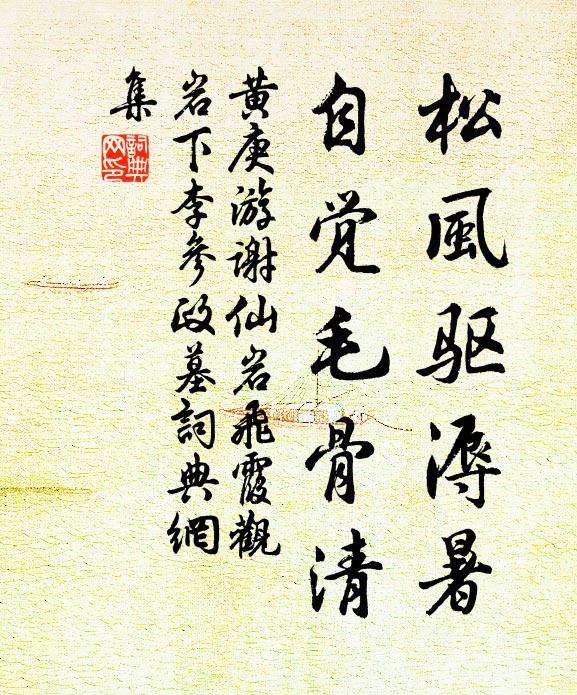 松風驱溽暑
自觉毛骨清
黄庚游谢仙岩飛霞觀
岩下李參政墓詞典網
集
詞典
网印